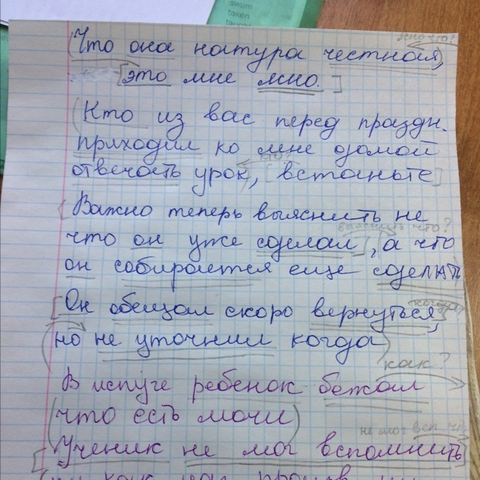 Что она натура честная,
это мне ясно.
Кто из вас перед праздн.
приходил ко мне домой
отвечать урок, встаньте
Важно теперь выяснить не
выяснить что?
что он уже сделал, а что
он собирается еще сделать
Он обещал скоро вернуться,
но не уточнил когда
как?
В испуге ребенок бежал
что есть мочи
Ученик не мог вспомнить